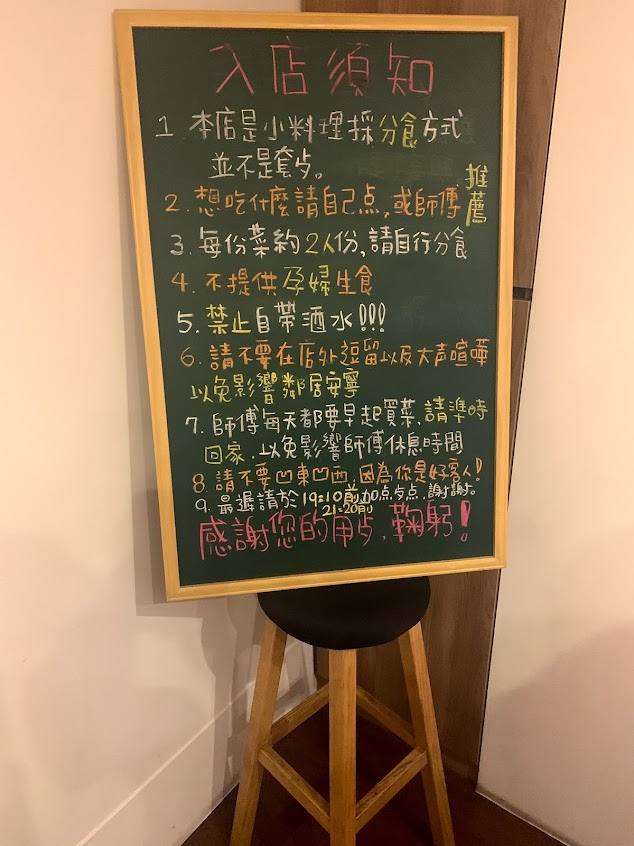 入店須知
1 本店是小料理採分食方式
並不是套歺。
2. 想吃什麼請自己点,或師傅推薦
3. 每份菜約2人份,請自行分食
4. 不提供孕婦生食
5. 禁止自帶酒水!!!
6. 請不要在店外逗留以及大声喧嘩
以免影響鄰居安寧
7. 師傅每天都要早起買菜,請準時
回家,以免影響師傅休息時間
8. 請不要凹東凹西,因為你是好客人!
9. 最遲請於19:10前加点歺点,謝謝。
21:20前
感謝您的用歺,鞠躬!